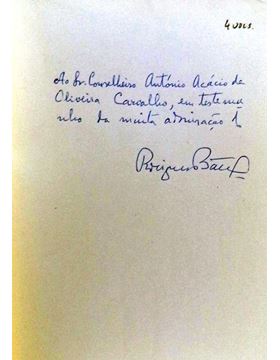 4 vols.
Ao Sr. Conselheiro António Acácio de
Oliveira Carvalho, em testemu
nho da muita admiração d